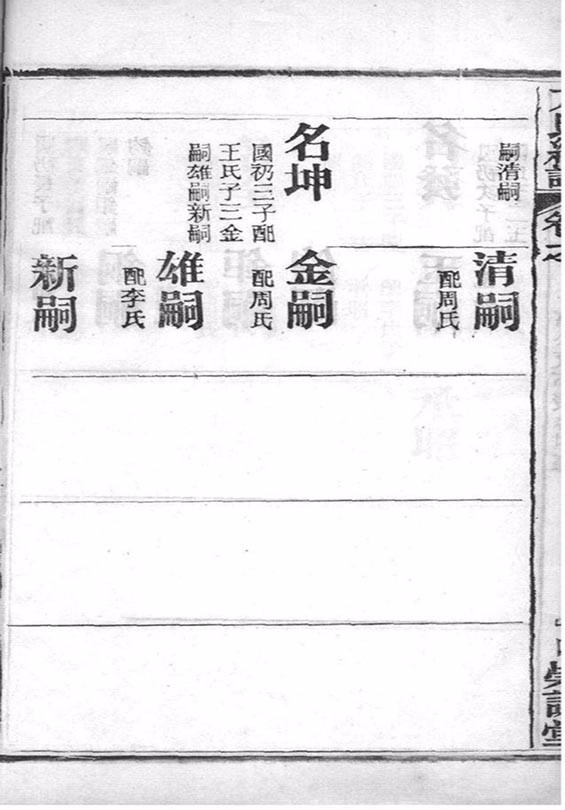 嗣清嗣
名坤
國初三子配
王氏子三金
嗣雄嗣新嗣
清嗣
配周氏
金嗣
配周氏
雄嗣
配李氏
新嗣